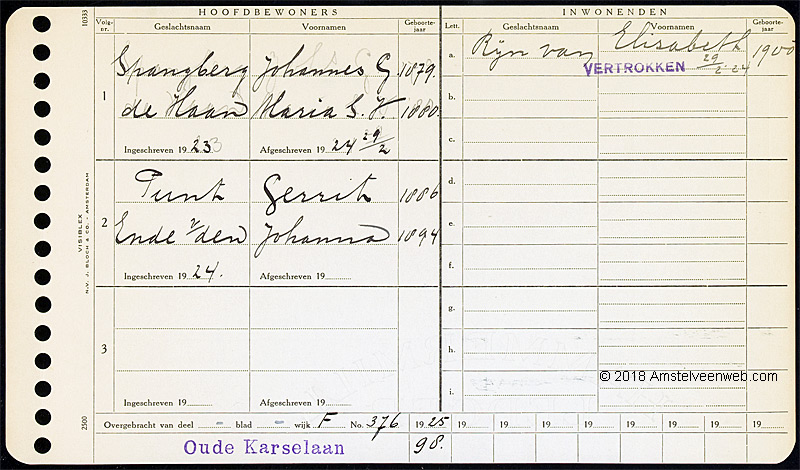 HOOFDBEWONERS
INWONENDEN
Volg-nr. Geslachtsnaam Voornamen Geboorte-jaar
Lett. Geslachtsnaam Voornamen Geboorte-jaar
10333
1
Spangberg Johannes G 1879.
de Haan Maria S. V. 1880.
Ingeschreven 19 23 Afgeschreven 19 24 29/2
2
Punt Gerrit 1886
Ende v/den Johanna 1894
Ingeschreven 19 24. Afgeschreven 19
3
Ingeschreven 19 Afgeschreven 19
a. Rijn van Elisabeth 1900
VERTROKKEN 29/2 24
b.
c.
d.
e.
f.
g.
h.
i.
© 2018 Amstelveenweb.com
VISIBLEX
N.V. J. BLOCH & CO. - AMSTERDAM
2500
Overgebracht van deel - blad - wijk F No. 376 19 25 19 19 19 19 19 19 19 19
Oude Karselaan 98.